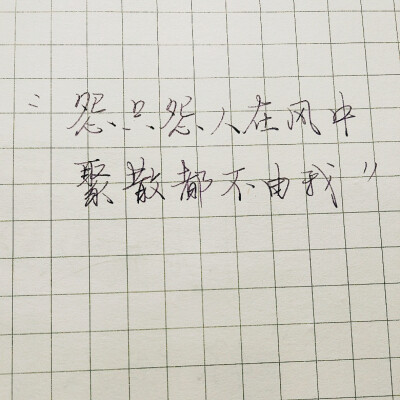 “怨只怨人在风中
聚散都不由我”